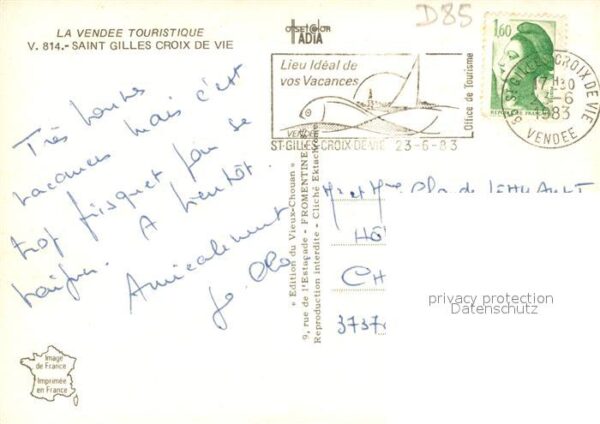 LA VENDEE TOURISTIQUE
V. 814.- SAINT GILLES CROIX DE VIE
OFFSET COLOR
IADIA
D85
1,60
Lieu Idéal de
vos Vacances
VENDÉE
Office de Tourisme
ST-GILLES-CROIX-DE-VIE 23-6-83
ST GILLES CROIX DE VIE
17 H30
23-6
1983
VENDEE
Très bonnes
vacances mais c'est
trop frisquet pour se
baigner. A bientôt.
Amicalement
« Edition du Vieux-Chouan »
9, rue de l'Estaçade - FROMENTINE
Reproduction interdite - Cliché Ektachrome
Mr et Mme
HÔ
CH
3737
privacy protection
Datenschutz
Image
de France
Imprimée
en France